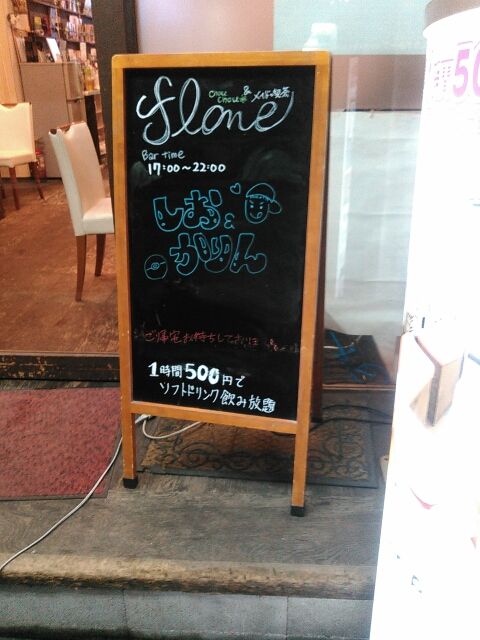 chou chou & メイド喫茶
flone
Bar time
17:00〜22:00
しお&
かりん
ご帰宅お待ちしております
1時間500円で
ソフトドリンク飲み放題
50